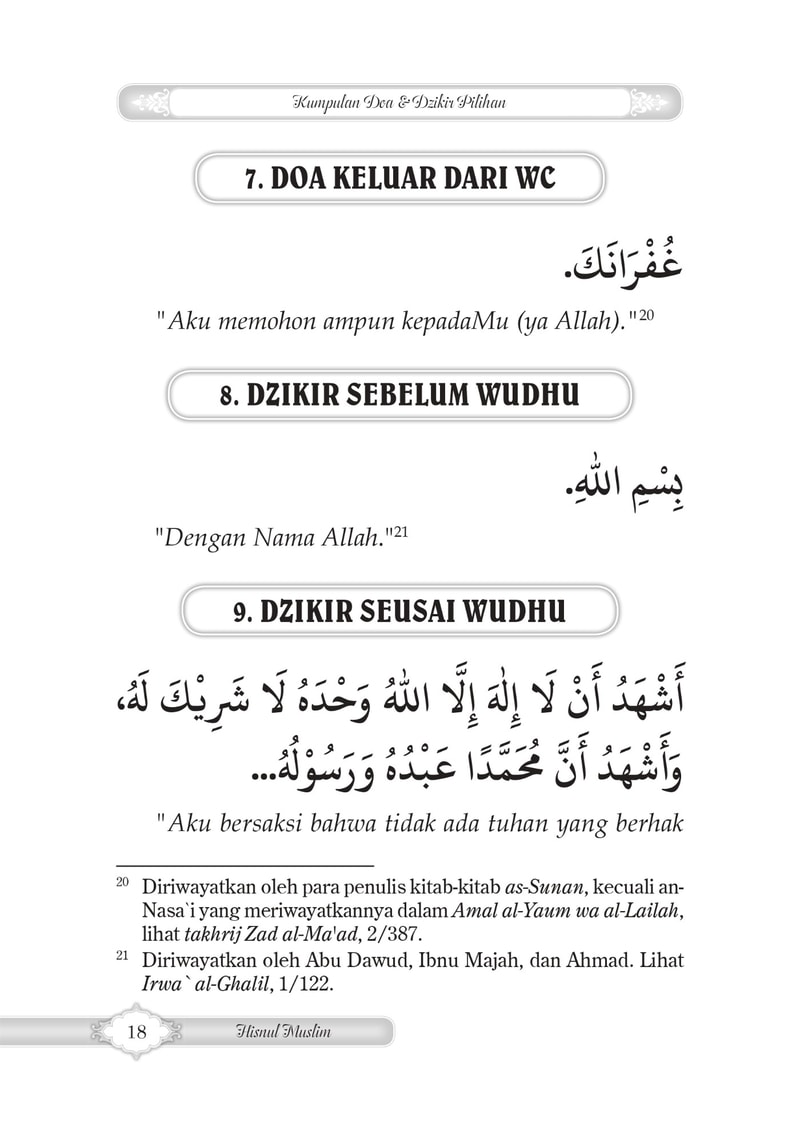 Kumpulan Doa & Dzikir Pilihan
7. DOA KELUAR DARI WC
غُفْرَانَكَ.
"Aku memohon ampun kepadaMu (ya Allah)."20
8. DZIKIR SEBELUM WUDHU
بِسْمِ اللّٰهِ.
"Dengan Nama Allah."21
9. DZIKIR SEUSAI WUDHU
أَشْهَدُ أَنْ لَا إِلٰهَ إِلَّا اللّٰهُ وَحْدَهُ لَا شَرِيْكَ لَهُ،
وَأَشْهَدُ أَنَّ مُحَمَّدًا عَبْدُهُ وَرَسُوْلُهُ...
"Aku bersaksi bahwa tidak ada tuhan yang berhak
20 Diriwayatkan oleh para penulis kitab-kitab as-Sunan, kecuali an-
Nasa`i yang meriwayatkannya dalam Amal al-Yaum wa al-Lailah,
lihat takhrij Zad al-Ma'ad, 2/387.
21 Diriwayatkan oleh Abu Dawud, Ibnu Majah, dan Ahmad. Lihat
Irwa` al-Ghalil, 1/122.
18 Hisnul Muslim